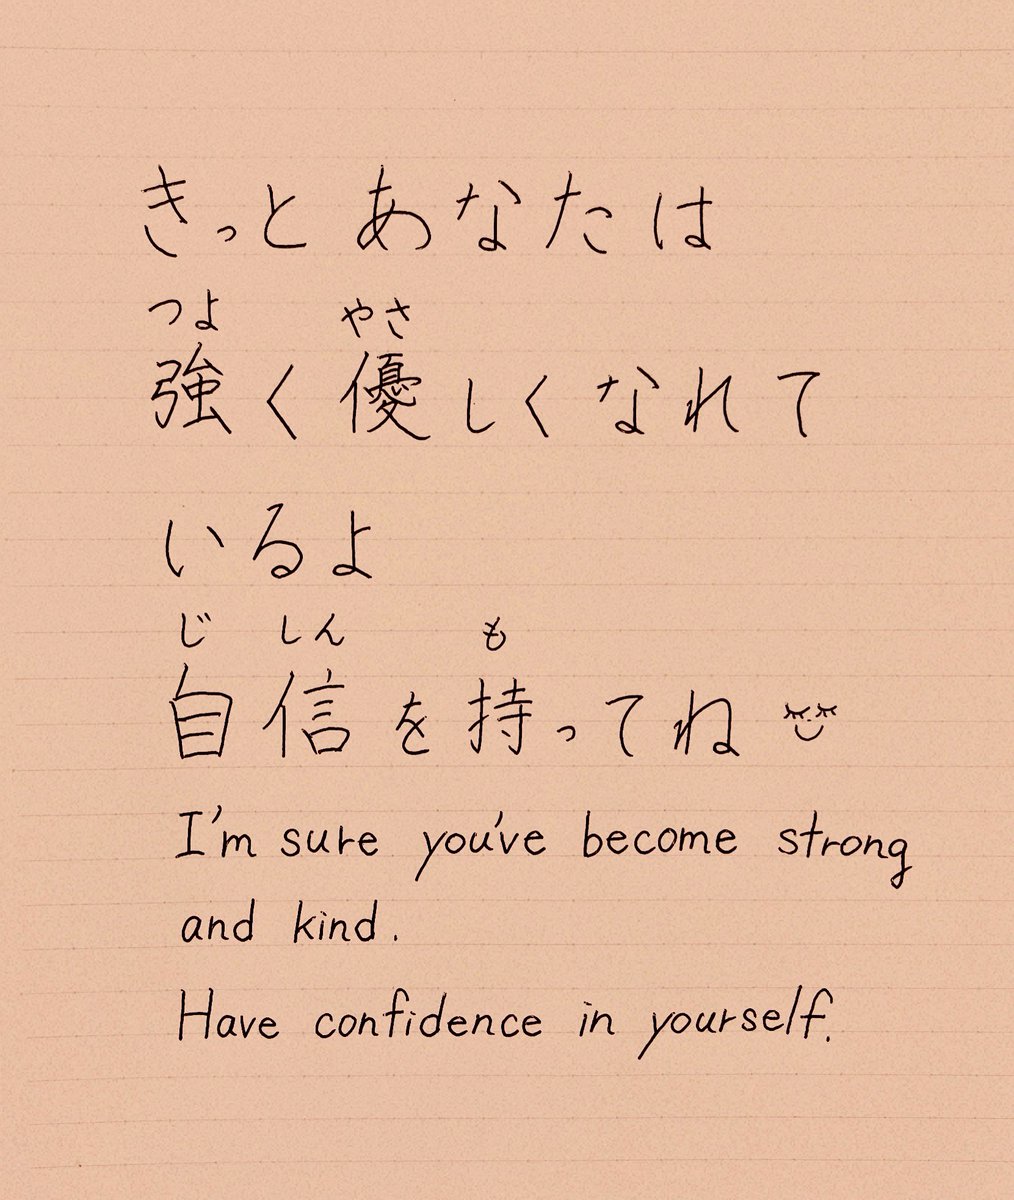 きっと あなたは
つよ やさ
強く 優しく なれて
いるよ
じ しん も
自信を持ってね
I'm sure you've become strong
and kind.
Have confidence in yourself.